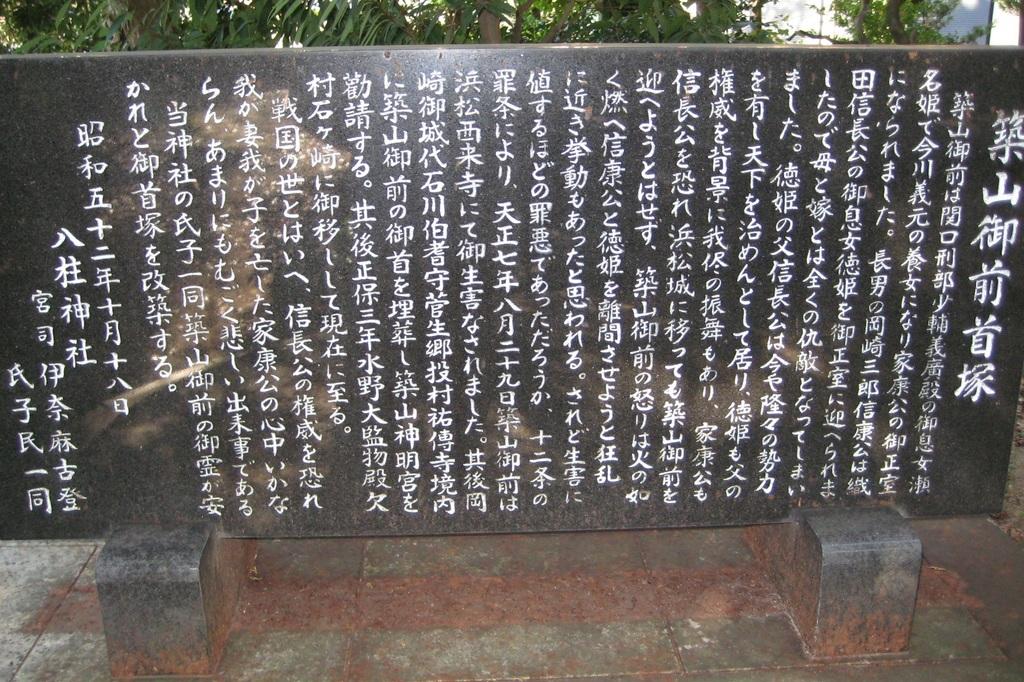 築山御前首塚
築山御前は関口刑部少輔義廣殿の御息女瀬
名姫で今川義元の養女になり家康公の御正室
になられました。長男の岡崎三郎信康公は織
田信長公の御息女徳姫を御正室に迎へられま
したので母と嫁とは全くの仇敵となってしまい
ました。徳姫の父信長公は今や隆々の勢力
を有し天下を治めんとして居り、徳姫も父の
権威を背景に我侭の振舞もあり、家康公も
信長公を恐れ浜松城に移っても築山御前を
迎へようとはせず、築山御前の怒りは火の如
く燃へ信康公と徳姫を離間させようと狂乱
に近き挙動もあったと思われる。されど生害に
値するほどの罪悪であったたろうか、十二条の
罪条により、天正七年八月二十九日築山御前は
浜松西来寺にて御生害なされました。其後岡
崎御城代石川伯耆守菅生郷投村祐傳寺境内
に築山御前の御首を埋葬し築山神明宮を
勸請する。其後正保三年水野大監物殿欠
村石ヶ崎に御移しして現在に至る。
戦国の世とはいへ、信長公の権威を恐れ
我が妻我が子を亡した家康公の心中いかな
らん、あまりにもむごく悲しい出来事である
当神社の氏子一同築山御前の御霊が安
かれと御首塚を改築する。
昭和五十二年十月十八日
八柱神社
宮司 伊奈麻古登
氏子民一同